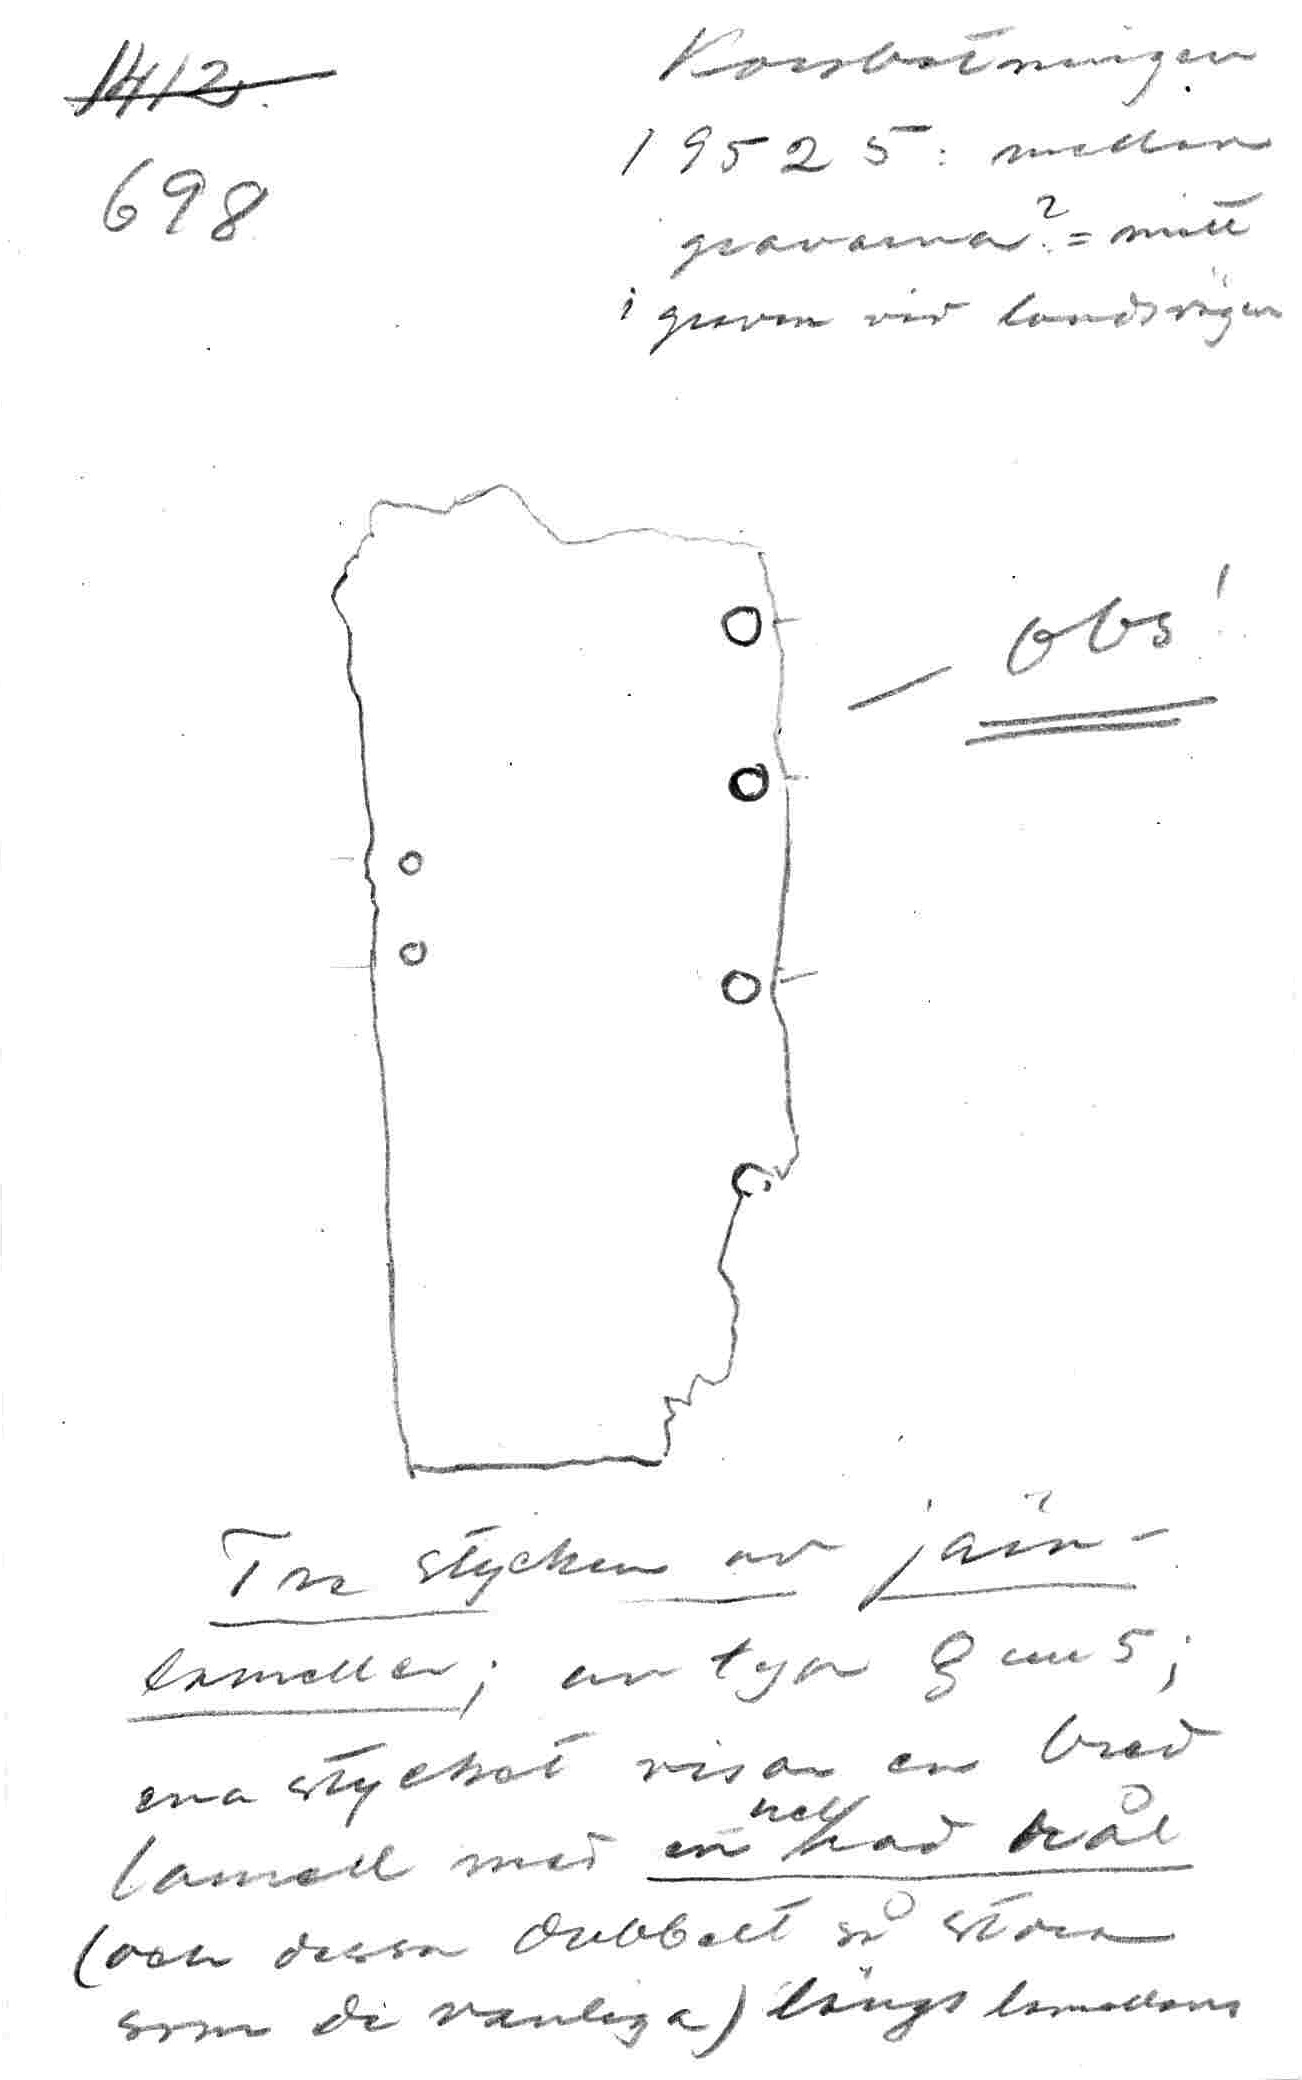 1412
698
Korsbetningen
19525: mellan
gravarna? = mitt
i graven vid landsvägen
obs!
Tre stycken av järn-
lameller; av typ 5;
ena stycket visar en bred
lamell med en hel rad hål
(och dessa dubbelt så stora
som de vanliga) längs lamellens